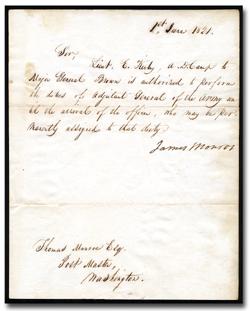 1st June 1821.
Sir,
Lieut. E. Kirby, a. D. Camp to
Major General Brown is authorized to perform
the duties of Adjutant General of the Army un
til the arrival of the officer, who may be per
manently assigned to that duty.
James Monroe
Thomas Munroe Esq
Post Master,
Washington.